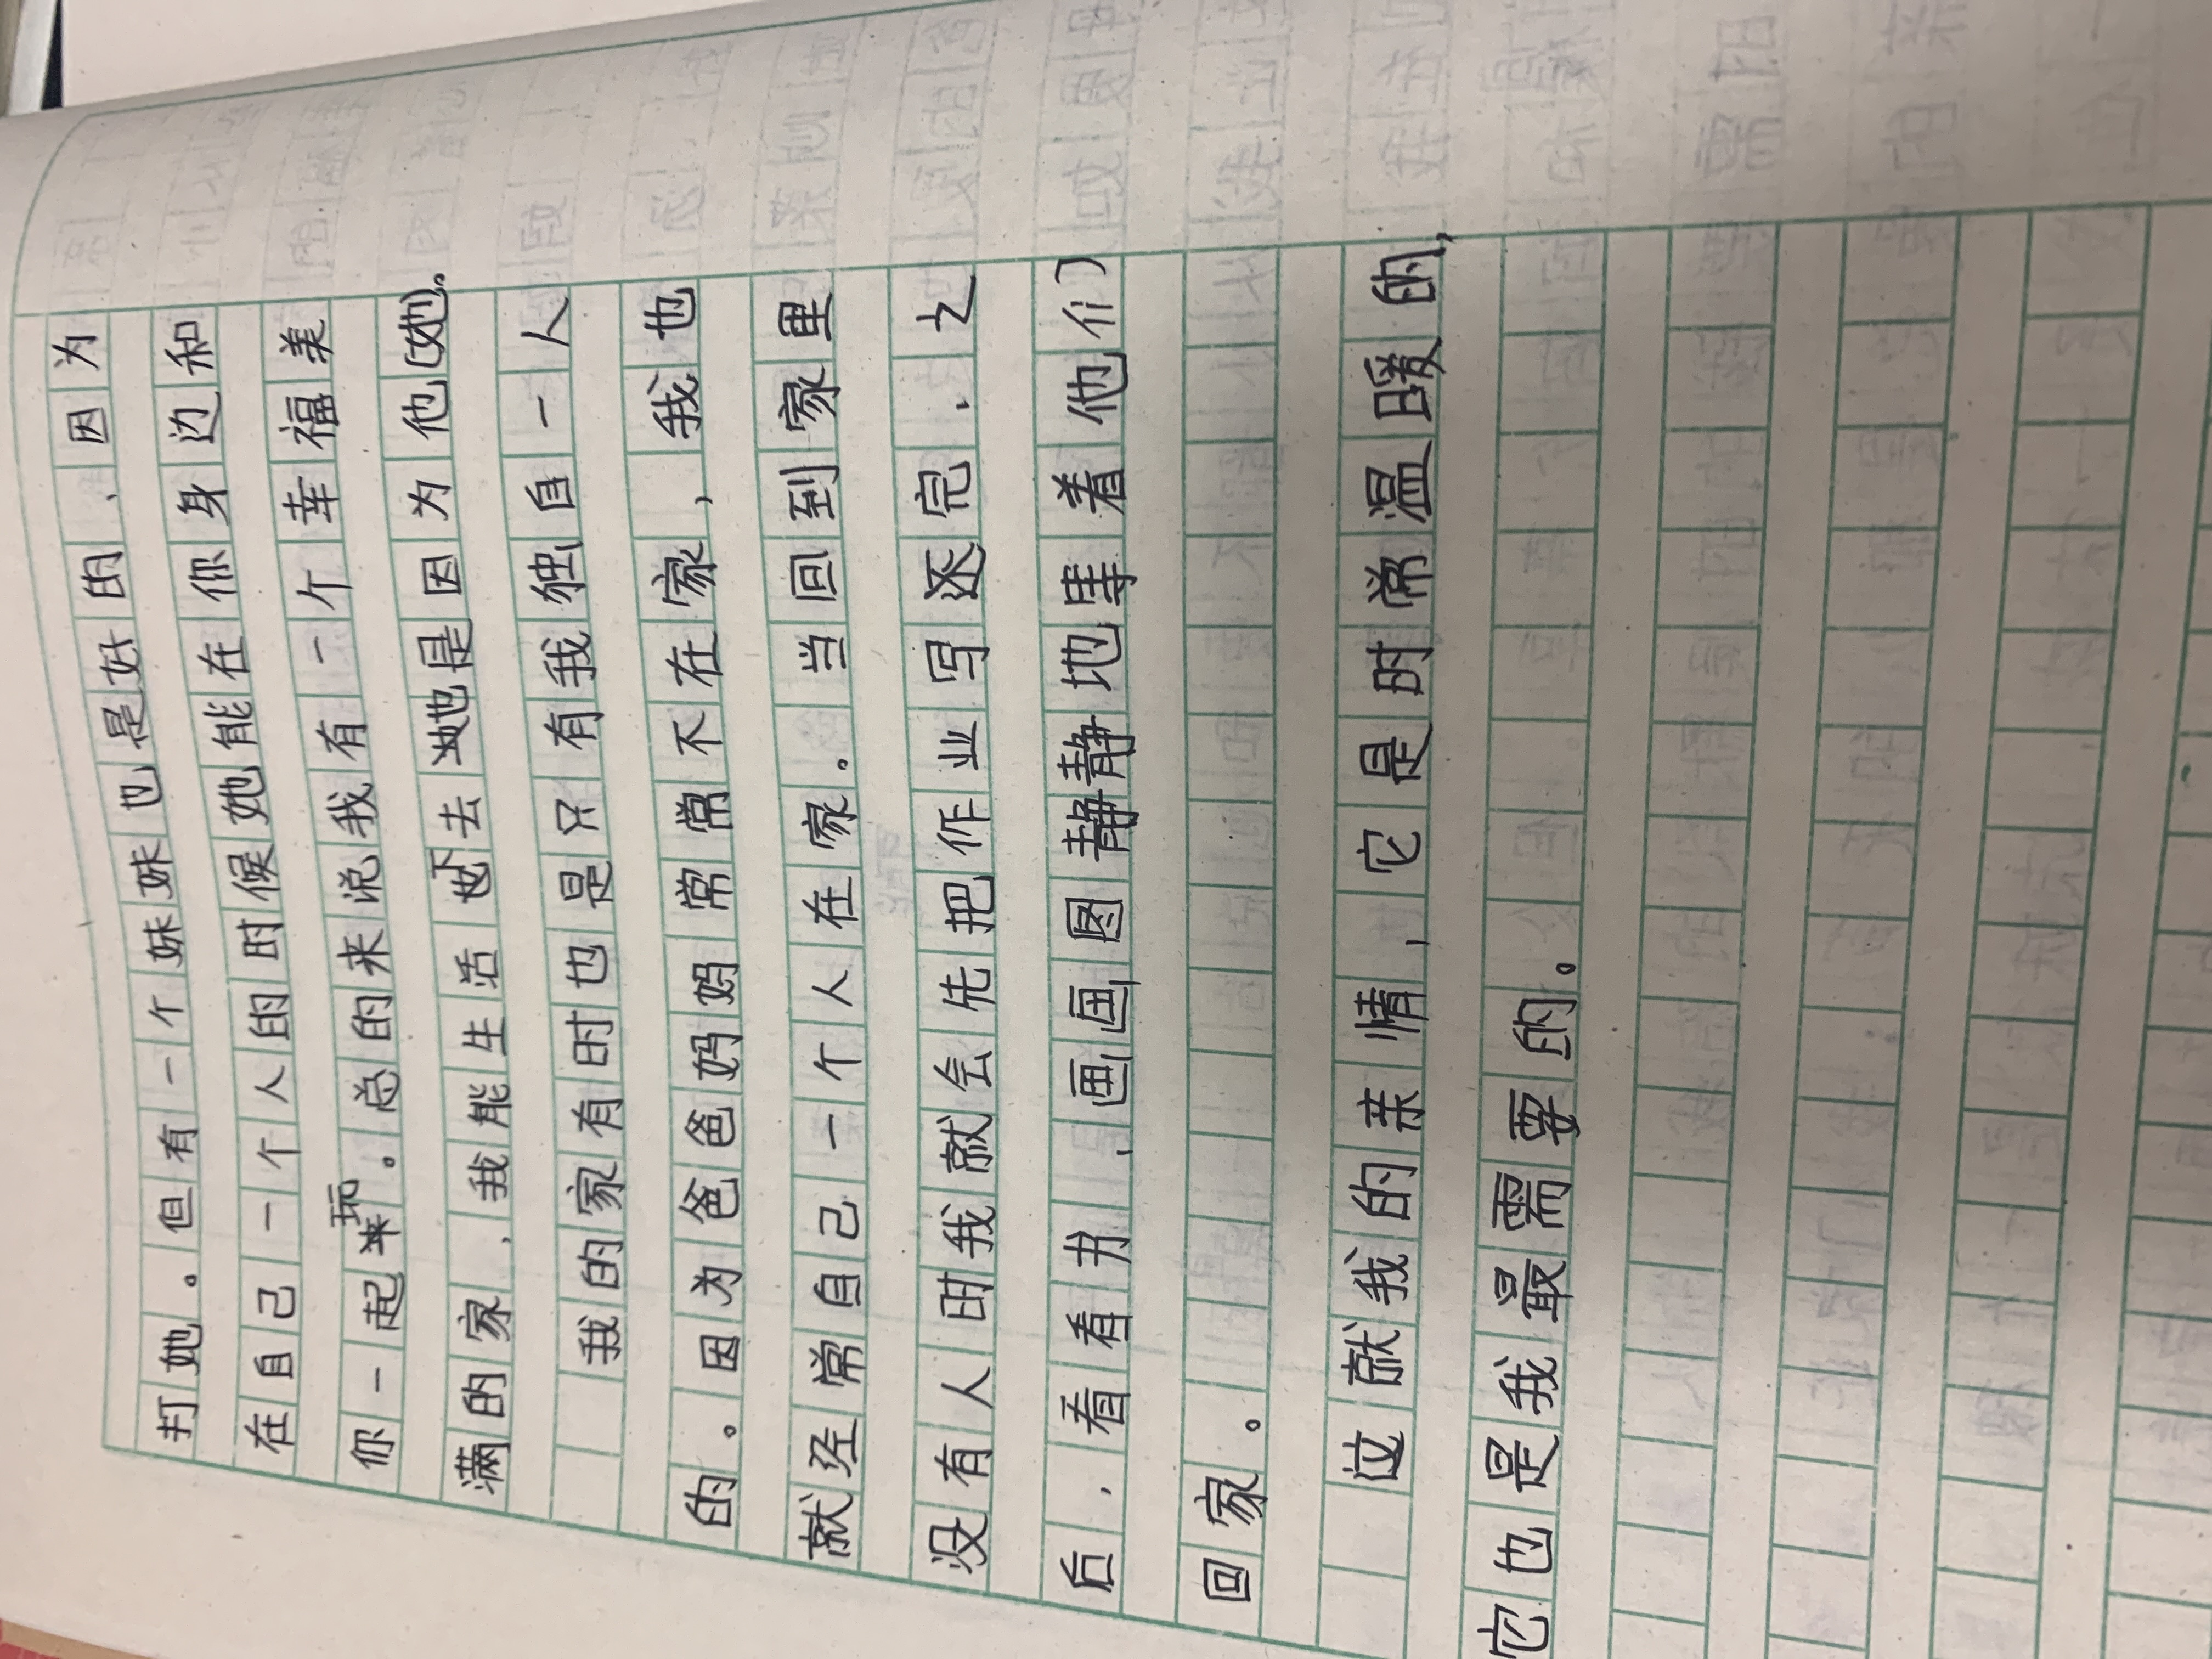 打她。但有一个妹妹也是好的，因为
在自己一个人的时候她能在你身边和
你一起玩。总的来说我有一个幸福美
满的家，我能生活下去也是因为他(她)。
我的家有时也是只有我独自一人
的。因为爸爸妈妈常常不在家，我也
就经常自己一个人在家。当回到家里
没有人时我就会先把作业写还完，之
后，看看书，画画图静静地等着他们
回家。
这就我的亲情，它是时常温暖的，
它也是我最需要的。